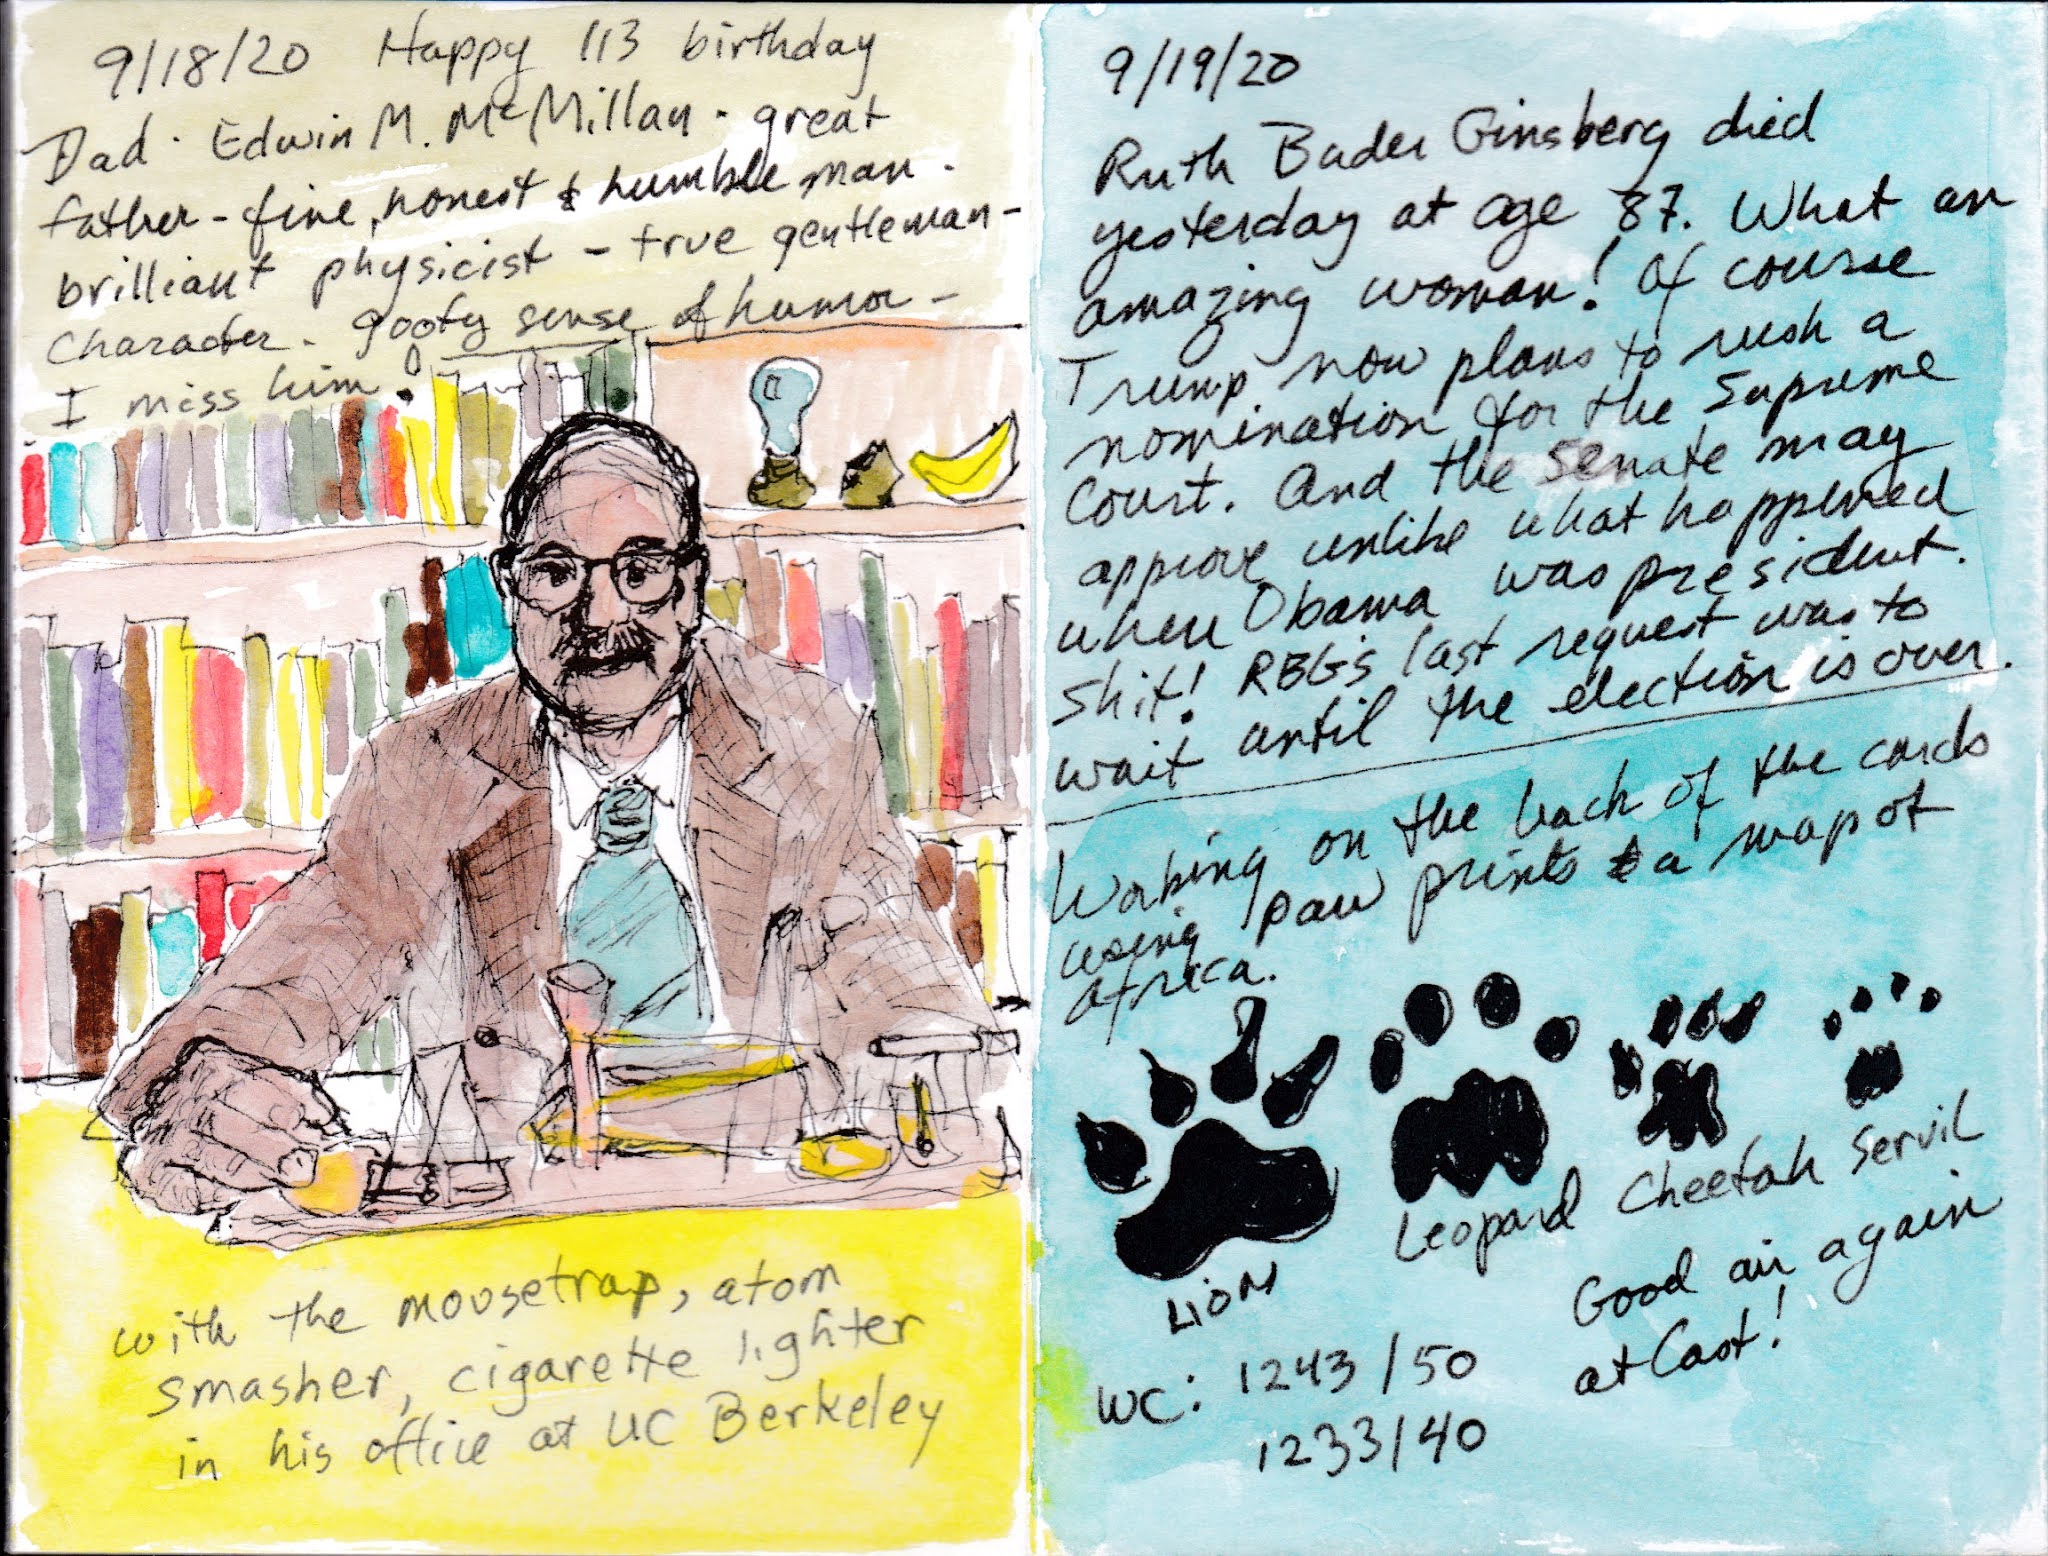 9/18/20 Happy 113 birthday
Dad. Edwin M. McMillan - great
father - fine, honest & humble man.
brilliant physicist - true gentleman -
Character - goofy sense of humor -
I miss him!
with the mousetrap, atom
smasher, cigarette lighter
in his office at UC Berkeley
9/19/20
Ruth Bader Ginsberg died
yesterday at age 87. What an
amazing woman! Of course
Trump now plans to rush a
nomination for the Supreme
Court. And the Senate may
approve unlike what happened
when Obama was president.
Shit! RBG's last request was to
wait until the election is over.
Working on the back of the cards
using paw prints & a map of
Africa.
Lion
Leopard
Cheetah
Servil
Good air again
at last!
WC: 1243/50
1233/40